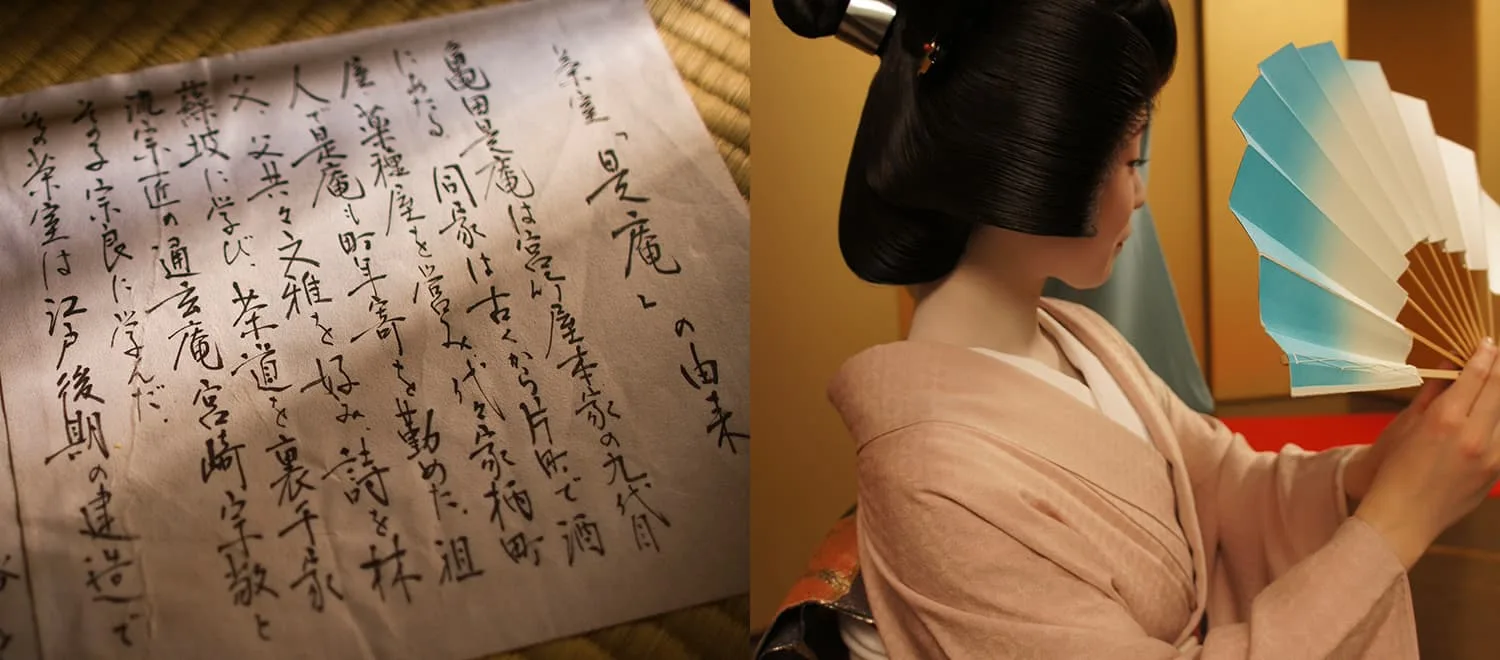 茶室「是庵」の由来
亀田是庵は宮竹屋本家の九代目
にあたる。同家は古くから片町で酒
屋、薬種屋を営み代々家柄町
人で是庵も町年寄を勤めた。祖
父、父共々文雅を好み、詩を林
蘇坡に学び、茶道を裏千家
流宗匠の通玄庵宮崎宗敬と
その子宗良に学んだ。
その茶室は江戸後期の建造で